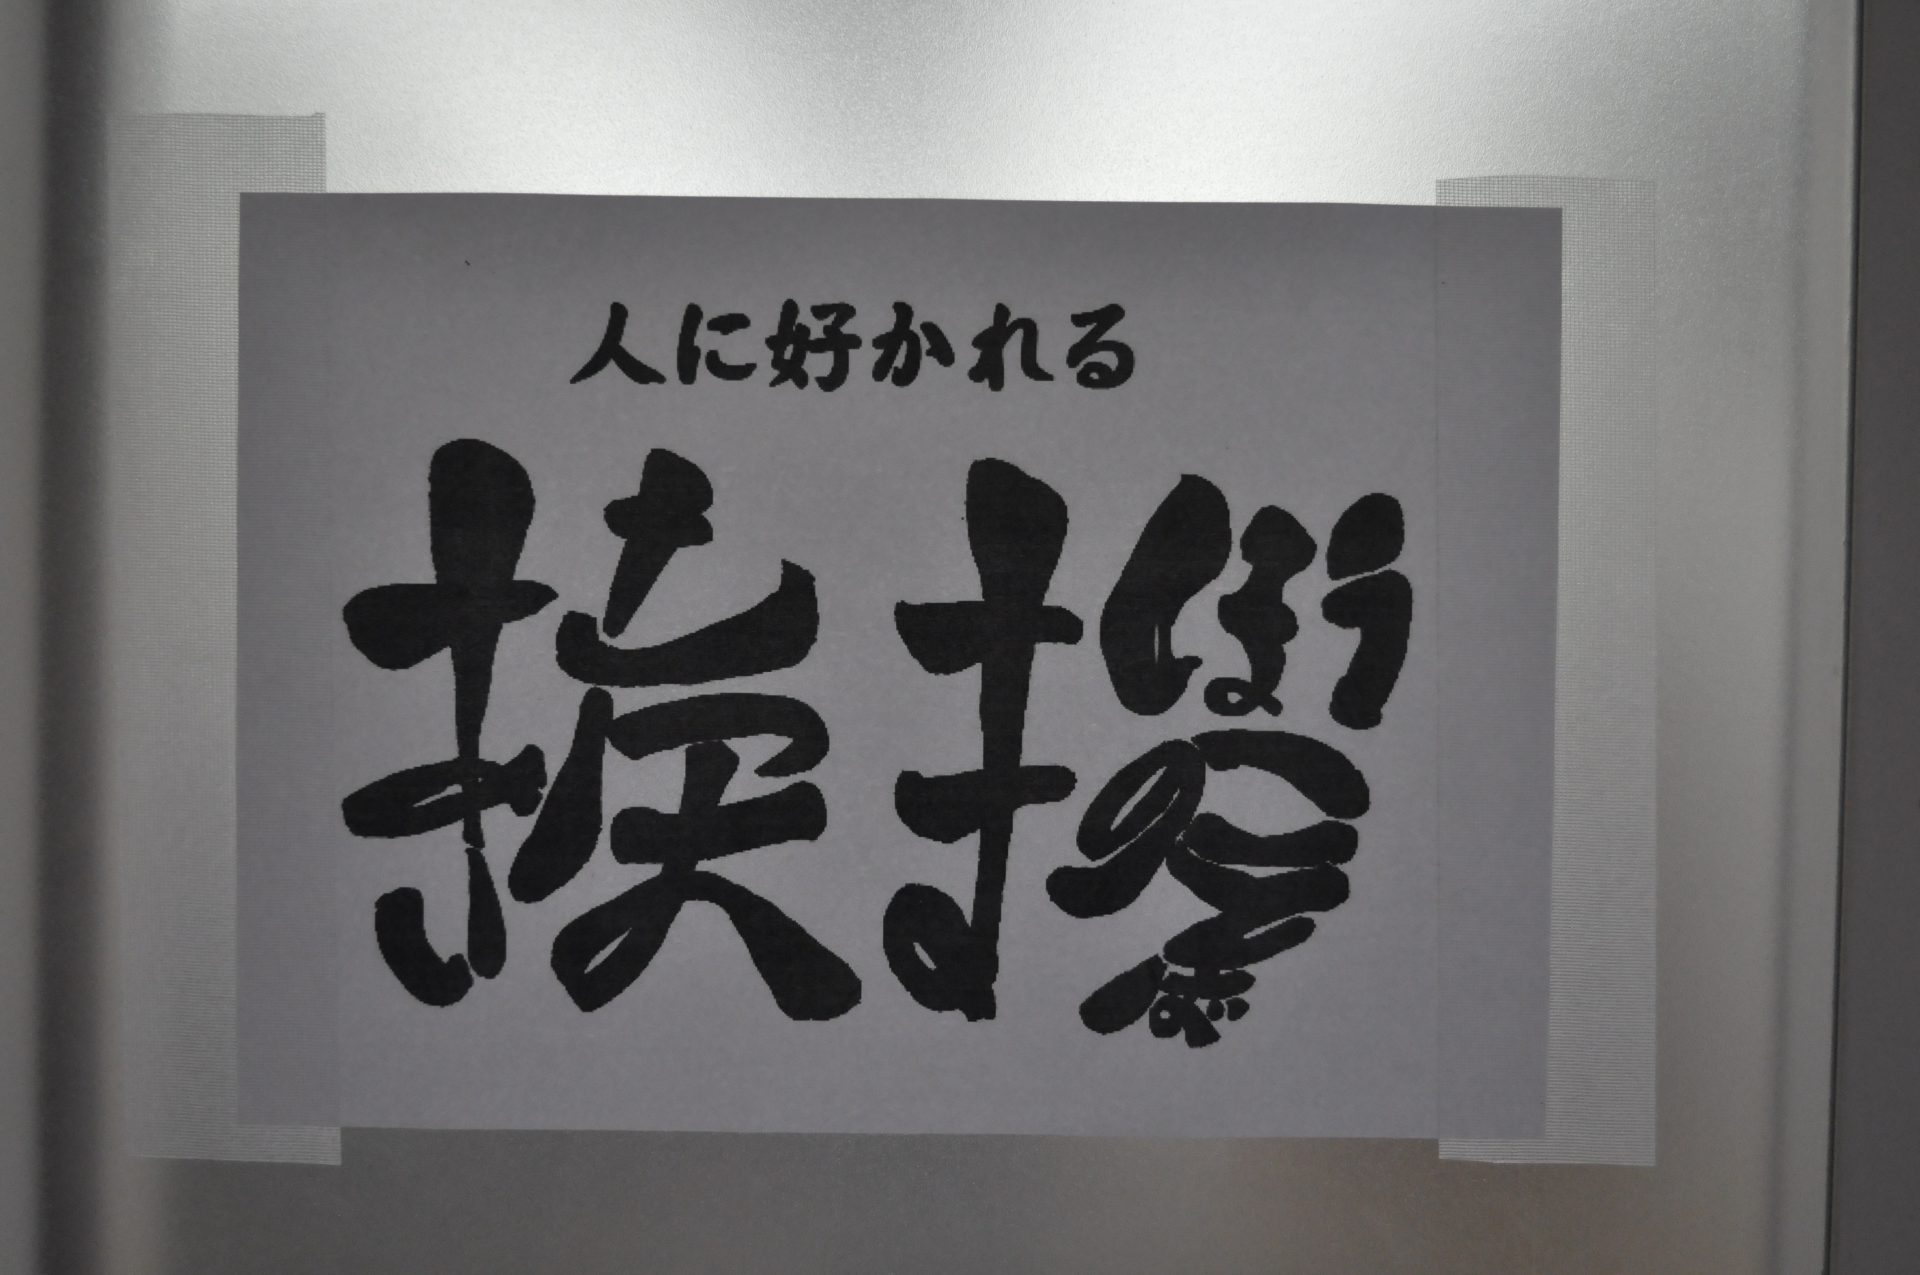 人に好かれる
挨拶